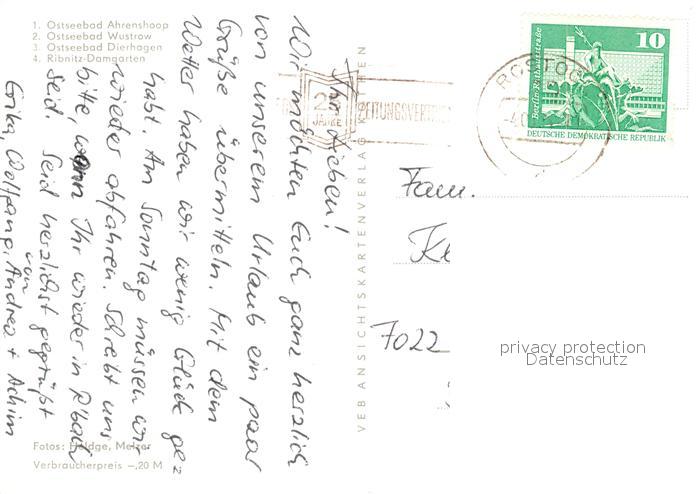 1. Ostseebad Ahrenshoop
2. Ostseebad Wustrow
3. Ostseebad Dierhagen
4. Ribnitz-Damgarten
Ihr Lieben!
Wir möchten Euch ganz herzlich
von unserem Urlaub ein paar
Grüße übermitteln. Mit dem
Wetter haben wir wenig Glück ge=
habt. Am Sonntag müssen wir
wieder abfahren. Schreibt uns
bitte, wann Ihr wieder in
seid. Seid herzlichst gegrüßt
von
Erika, Wolfgang, Andrea + Achim
Fotos: Heldge, Melzer
Verbraucherpreis –,20 M
VEB ANSICHTSKARTENVERLAG
25
JAHRE
ROSTOCK
Berlin-Rathausstraße
10
DEUTSCHE DEMOKRATISCHE REPUBLIK
Fam.
7022
privacy protection
Datenschutz